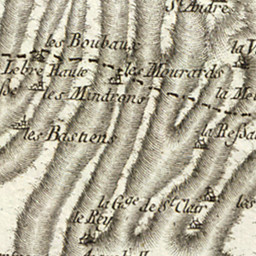 St André
les Boubaux
la
Lobre Haute
les Mourards
les Mindrons
la
les Bastiens
la
la G.ge de St Clair
les
le Rey